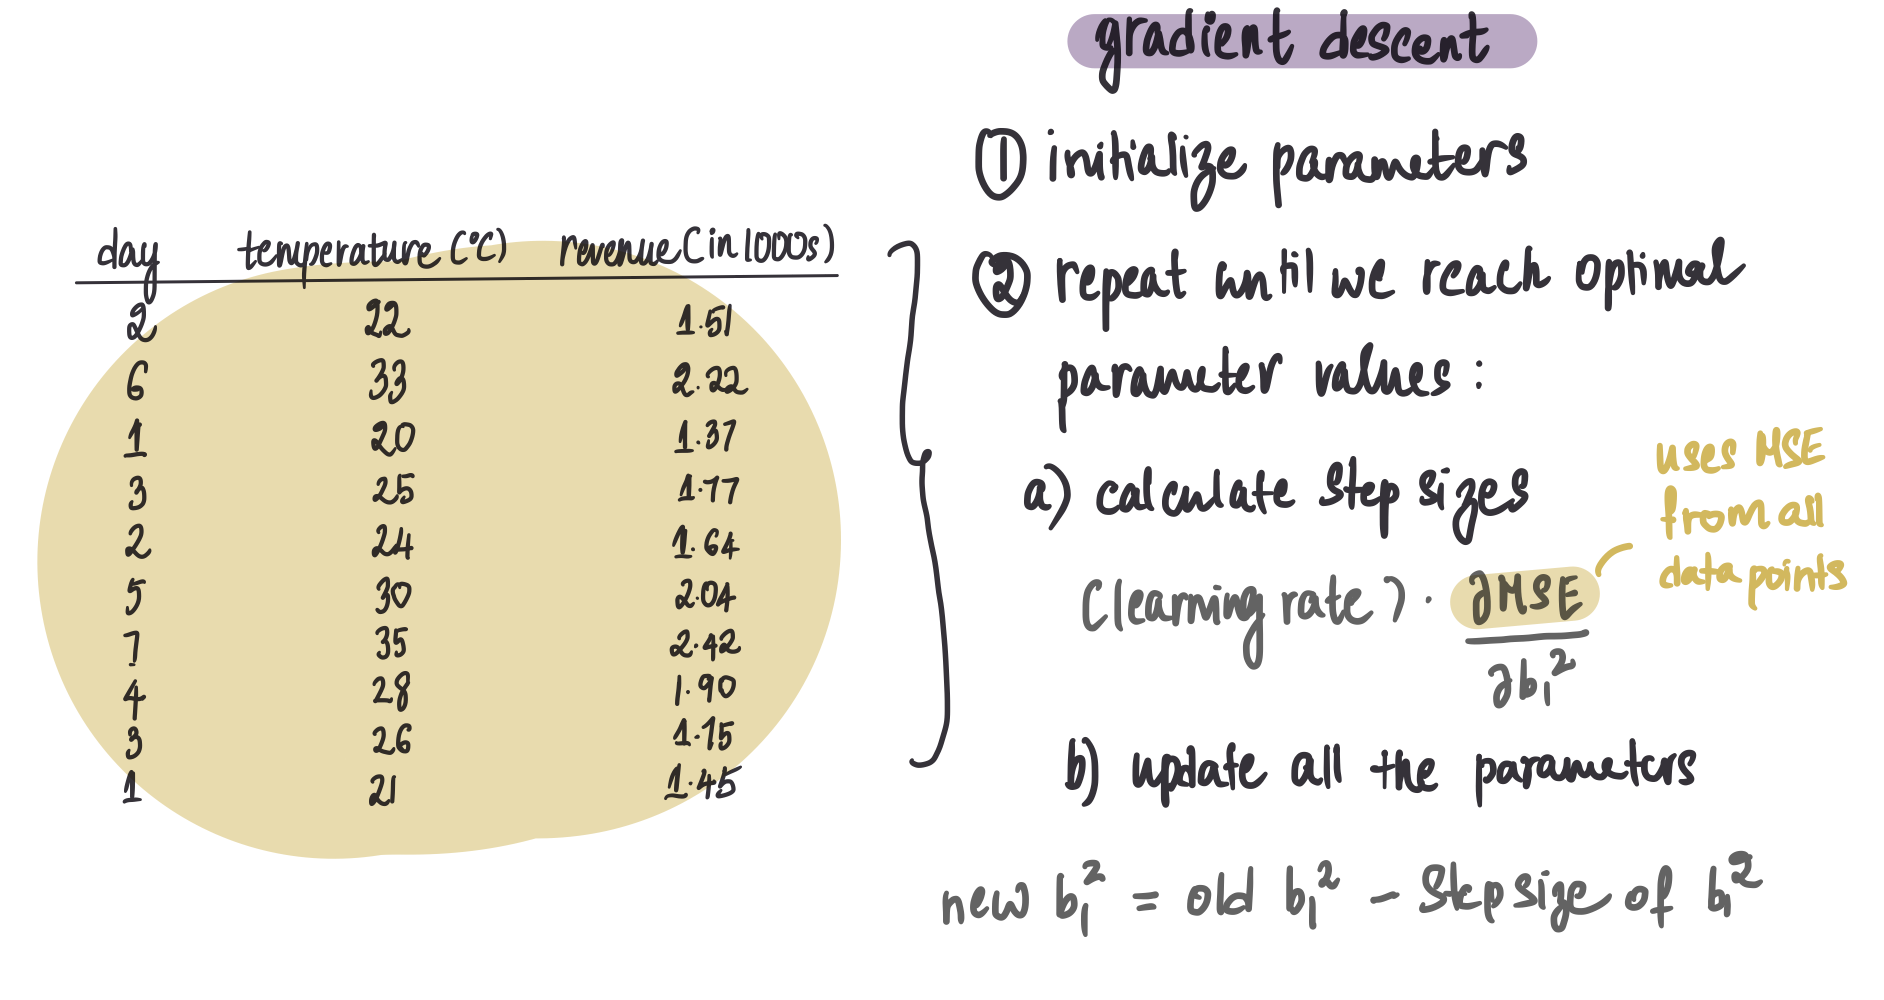 gradient descent
① initialize parameters
② repeat until we reach optimal
parameter values :
a) calculate step sizes
(learning rate) · ∂MSE
∂b₁²
uses MSE
from all
data points
b) update all the parameters
new b₁² = old b₁² - step size of b₁²
day temperature (°C) revenue (in 1000s)
2 22 1.51
6 33 2.22
1 20 1.37
3 25 1.77
2 24 1.64
5 30 2.04
7 35 2.42
4 28 1.90
3 26 1.75
1 21 1.45